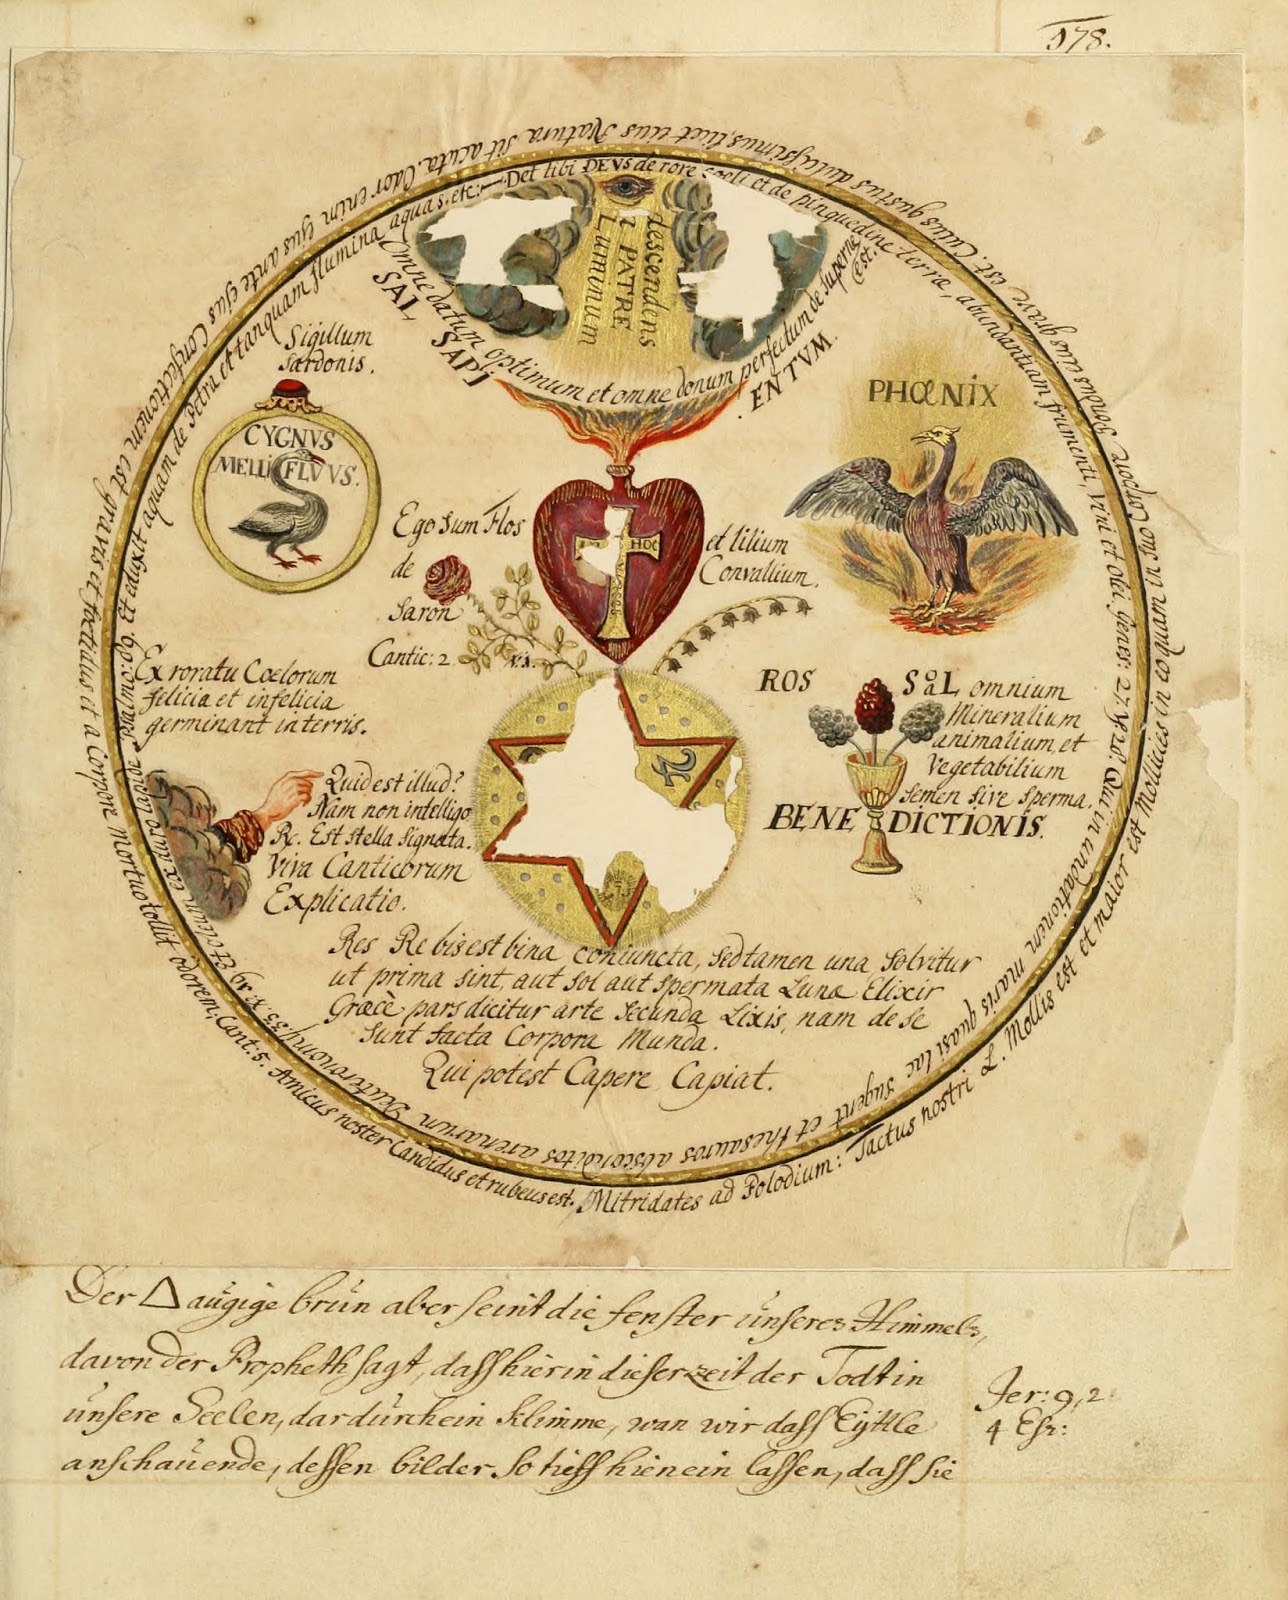 978.
Det tibi DEUS de rore coeli et de pinguedine terræ, abundantiam frumenti, Vini et olei Genes: 27. ℣ 28. Qui in undationem maris quasi lac sugent et thesauros absconditos arenarum Deuteronom: 33. ℣ 19 et oleum ex duro lapide Psalmo: 69. Et eduxit aquam de Petra et tanquam flumina aquas. etc:
Amicus noster Candidus et rubeus est. Mitridates ad Polodium: Tactus nostri L. Mollis est et maior est Mollicies in eo quam in suo Corpore Pondus eius grave est. Cuius gustus dulcissimus, licet eius Natura sit acuta. Odor enim Ejus ante ejus Confectionem est gravis et foetidus et a Corpore Mortuo tollit odorem, Cant: 5.
descendens
à PATRE
Luminum
Omne datum optimum et omne donum perfectum de superne est.
SAL
SAPI ENTVM.
Sigillum
Sardonis.
CYGNVS
MELLIFLVVS.
PHŒNIX
Ego sum Flos
de
Saron
Cantic: 2
et lilium
Convallium.
HOC
Ex roratu Coelorum
felicia et infelicia
germinant in terris.
ROS
SoL omnium
a
Mineralium
animalium, et
Vegetabilium
semen sive sperma.
BENE DICTIONIS.
Quid est illud?
Nam non intelligo
R. Est stella signata.
Viva Canticorum
Explicatio.
♃
Res Rebis est bina coniuncta, sed tamen una, solvitur
ut prima sint, aut sol aut spermata Lunæ Elixir
Græcè pars dicitur arte secunda Lixis, nam de se
sunt facta Corpora Munda.
Qui potest Capere Capiat.
Der △ aügige brün aber seint die fenster ünseres Himmels,
davon der Propheth sagt, dass hier in dieser zeit der Todt in
ünsere Seelen, dardürch ein klimme, wan wir dass Eyttle
anschaüende, dessen bilder so tieff hienein lassen, dass sie
Jer: 9, 2
4 Esr: